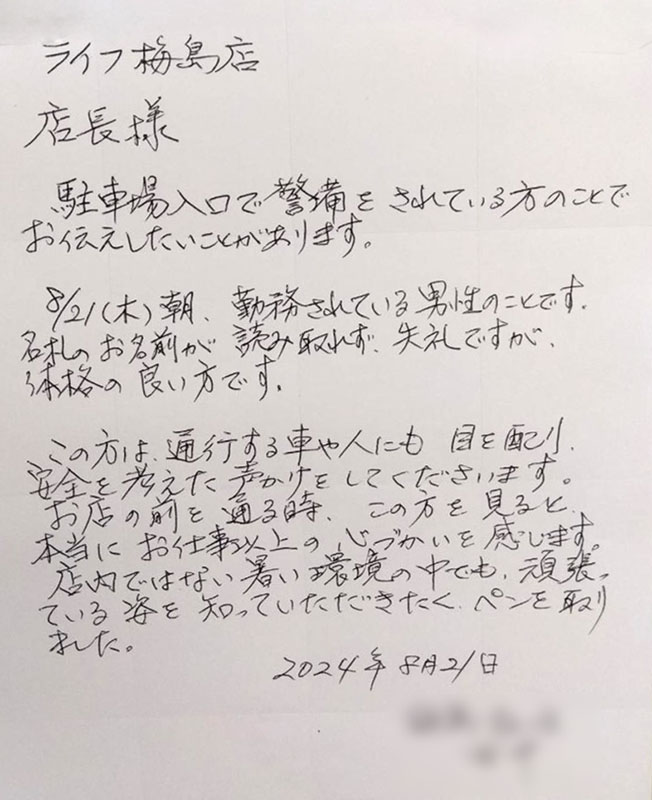 ライフ梅島店
店長様
駐車場入口で警備をされている方のことで
お伝えしたいことがあります。
8/21(木)朝、勤務されている男性のことです。
名札のお名前が読み取れず、失礼ですが、
体格の良い方です。
この方は、通行する車や人にも目を配り、
安全を考えた声かけをしてくださいます。
お店の前を通る時、この方を見ると、
本当にお仕事以上の心づかいを感じます。
店内ではない暑い環境の中でも、頑張っ
ている姿を知っていただきたく、ペンを取り
ました。
2024年8月21日